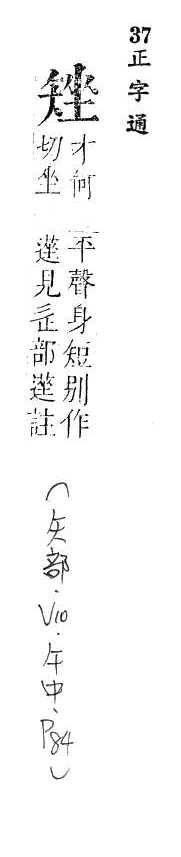 37正字通
矬
才何
切坐
平聲身短別作
遳見辵部遳註
(矢部·V10·午中·P84)